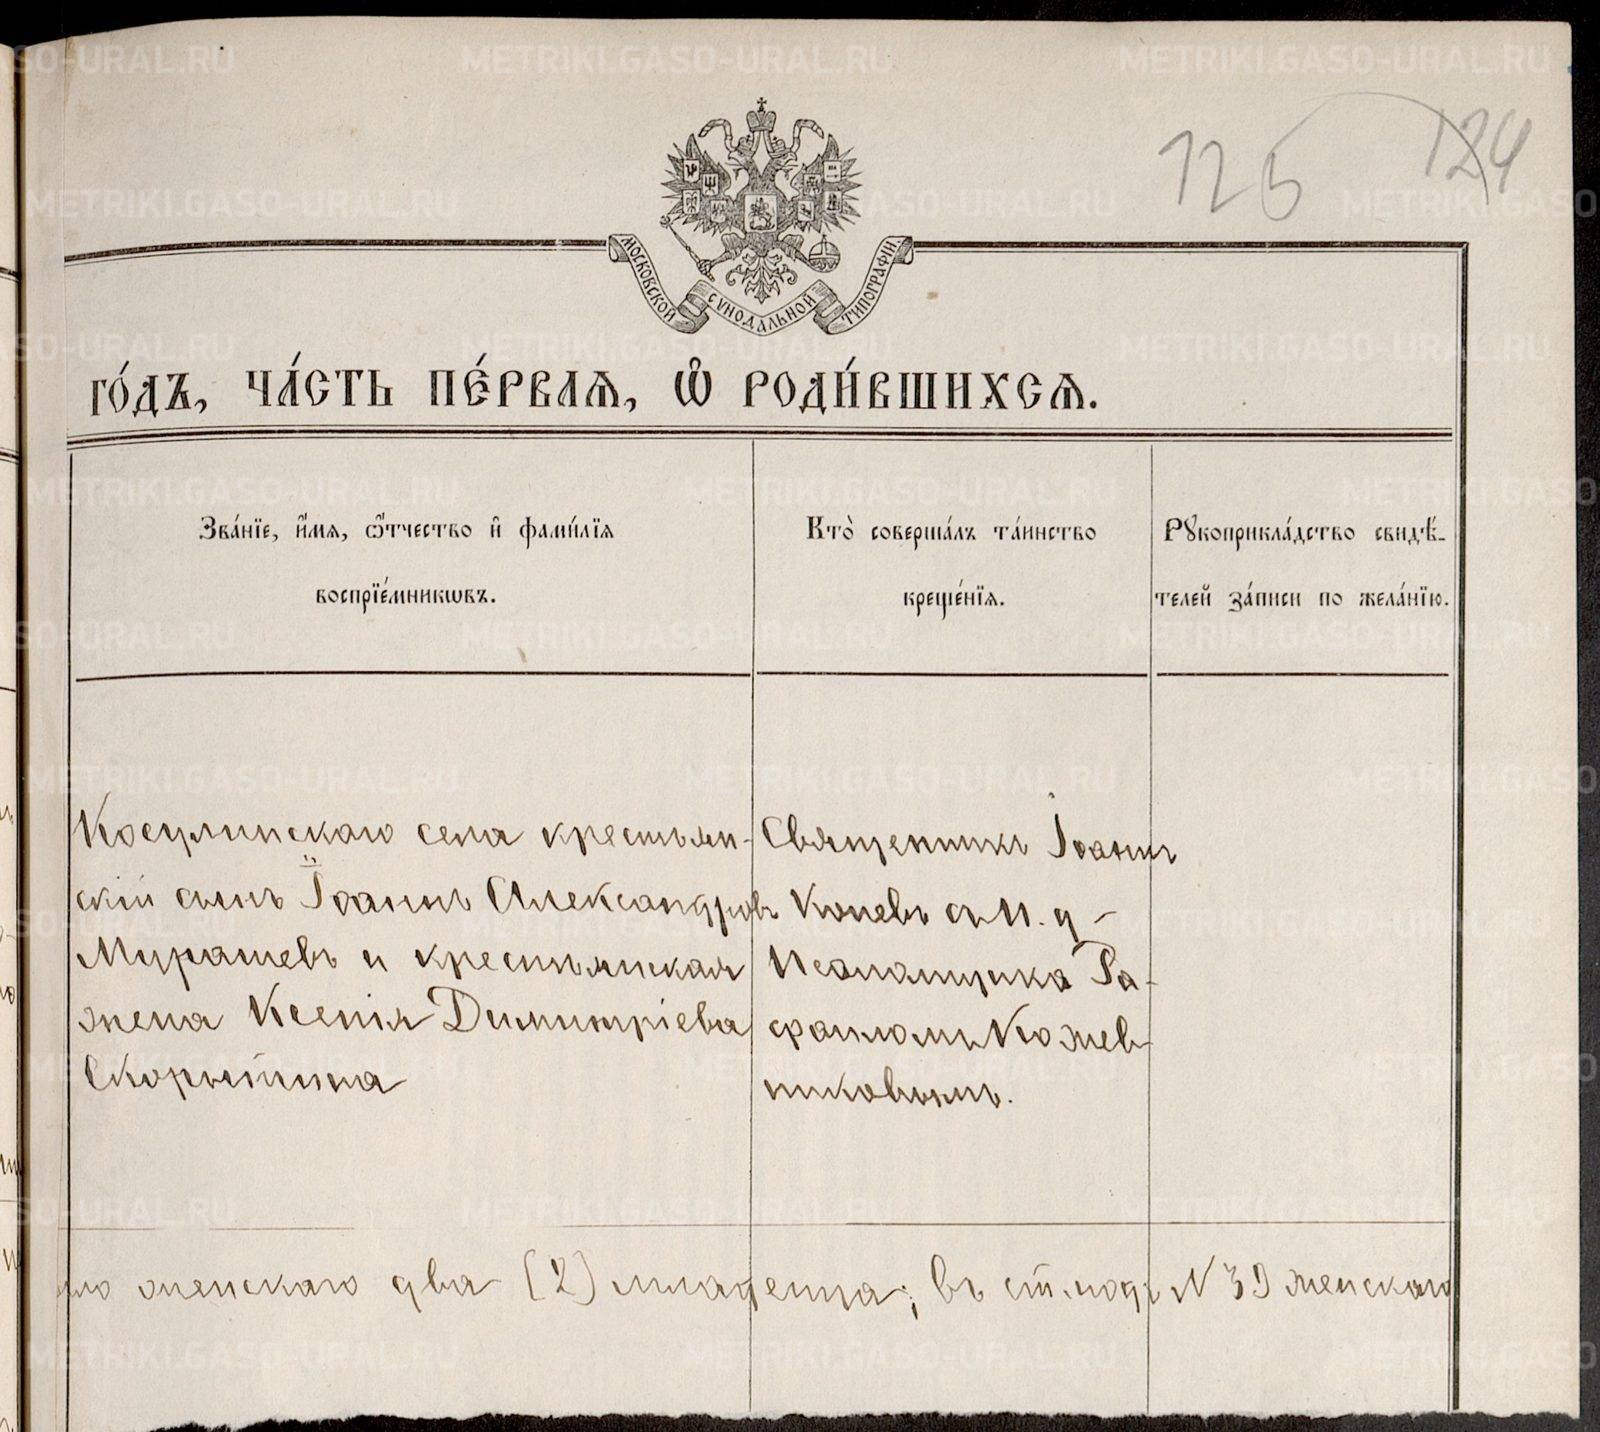 126 124
МОСКОВСКОЙ СѴНОДАЛЬНОЙ ТИПОГРАФІИ.
го́дъ, ча́сть пе́рваѧ, ѡ҆ роди́вшихсѧ.
Зва́нїе, и҆́мѧ, ѻ҆́тчество и҆ фами́лїѧ
воспрїе́мникѡвъ.
Кто̀ соверша́лъ та́инство
креще́нїѧ.
Рꙋкоприкла́дство свидѣ́-
телей за́писи по жела́нїю.
Косулинскаго села крестьян-
скій сынъ Іоаннъ Александровъ
Мурашевъ и крестьянская
жена Ксенія Димитріева
Скорынина
Священникъ Іоаннъ
Коневъ съ И. д.
Псаломщика Ра-
фаиломъ Кожев-
никовымъ.
женскаго два (2) младенца; въ ст. подъ № 39 женскаго
METRIKI.GASO-URAL.RU